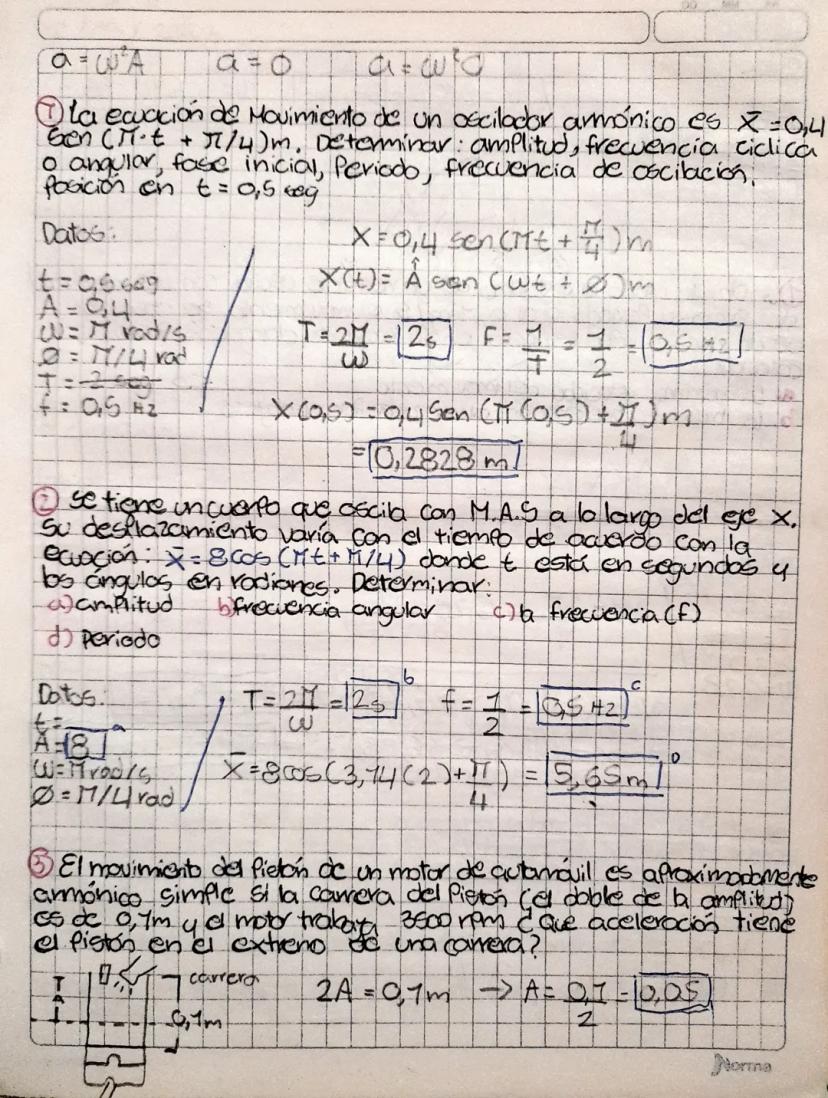 a = ω²A a = 0 a = ω²O
① La ecuación de Movimiento de un oscilador armónico es x̄ = 0,4
sen (π·t + π/4)m. Determinar: amplitud, frecuencia ciclica
o angular, fase inicial, Periodo, frecuencia de oscilación,
Posición en t = 0,5 seg
Datos:
X = 0,4 sen(πt + π/4)m
t = 0,5 seg
X(t) = Â sen (ωt + Ø)m
A = 0,4
ω = π rad/s
T = 2π/ω = 2s f = 1/T = 1/2 = 0,5 Hz
Ø = π/4 rad
T = 2 seg
f = 0,5 Hz
X(0,5) = 0,4 Sen (π(0,5) + π/4)m
= 0,2828 m
② Se tiene un cuerpo que oscila con M.A.S a lo largo del eje X.
Su desplazamiento varía con el tiempo de acuerdo con la
ecuación: x̄ = 8cos (πt + π/4) donde t está en segundos y
los ángulos en radianes. Determinar:
a) amplitud b) frecuencia angular c) la frecuencia (f)
d) Periodo
Datos:
T = 2π/ω = 2s b f = 1/2 = 0,5 Hz c
t =
A = 8 a
ω = π rad/s
X̄ = 8cos(3,14(2) + π/4) = 5,65m D
Ø = π/4 rad
③ El movimiento del Pistón de un motor de automóvil es aproximadamente
armónico simple si la carrera del Pistón (el doble de la amplitud)
es de 0,1m y el motor trabaja 3500 rpm ¿Que aceleración tiene
el Pistón en el extremo de una carrera?
carrera
2A = 0,1m → A = 0,1/2 = 0,05
0,1m
Norma